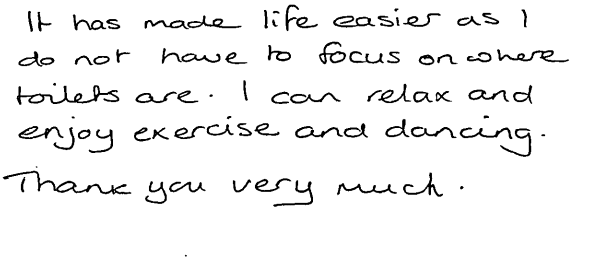 It has made life easier as I
do not have to focus on where
toilets are. I can relax and
enjoy exercise and dancing.
Thank you very much.